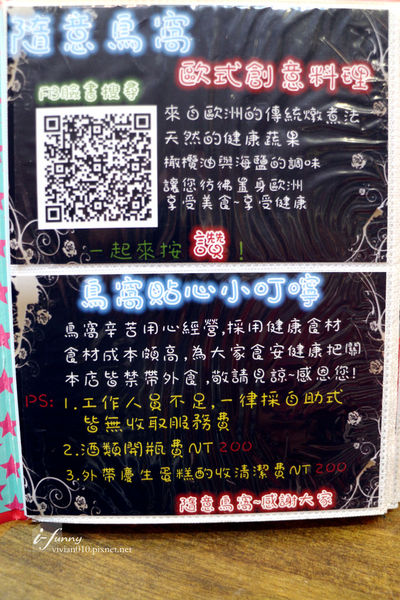 隨意鳥窩
歐式創意料理
FB臉書搜尋
來自歐洲的傳統燉煮法
天然的健康蔬果
橄欖油與海鹽的調味
讓您彷彿置身歐洲
享受美食~享受健康
一起來按 讚 !
鳥窩貼心小叮嚀
鳥窩辛苦用心經營,採用健康食材
食材成本頗高,為大家食安健康把關
本店皆禁帶外食,敬請見諒~感恩您!
PS: 1.工作人員不足,一律採自助式
皆無收取服務費
2.酒類開瓶費NT 200
3.外帶慶生蛋糕酌收清潔費NT 200
隨意鳥窩~感謝大家
i-funny
vivian010.pixnet.net